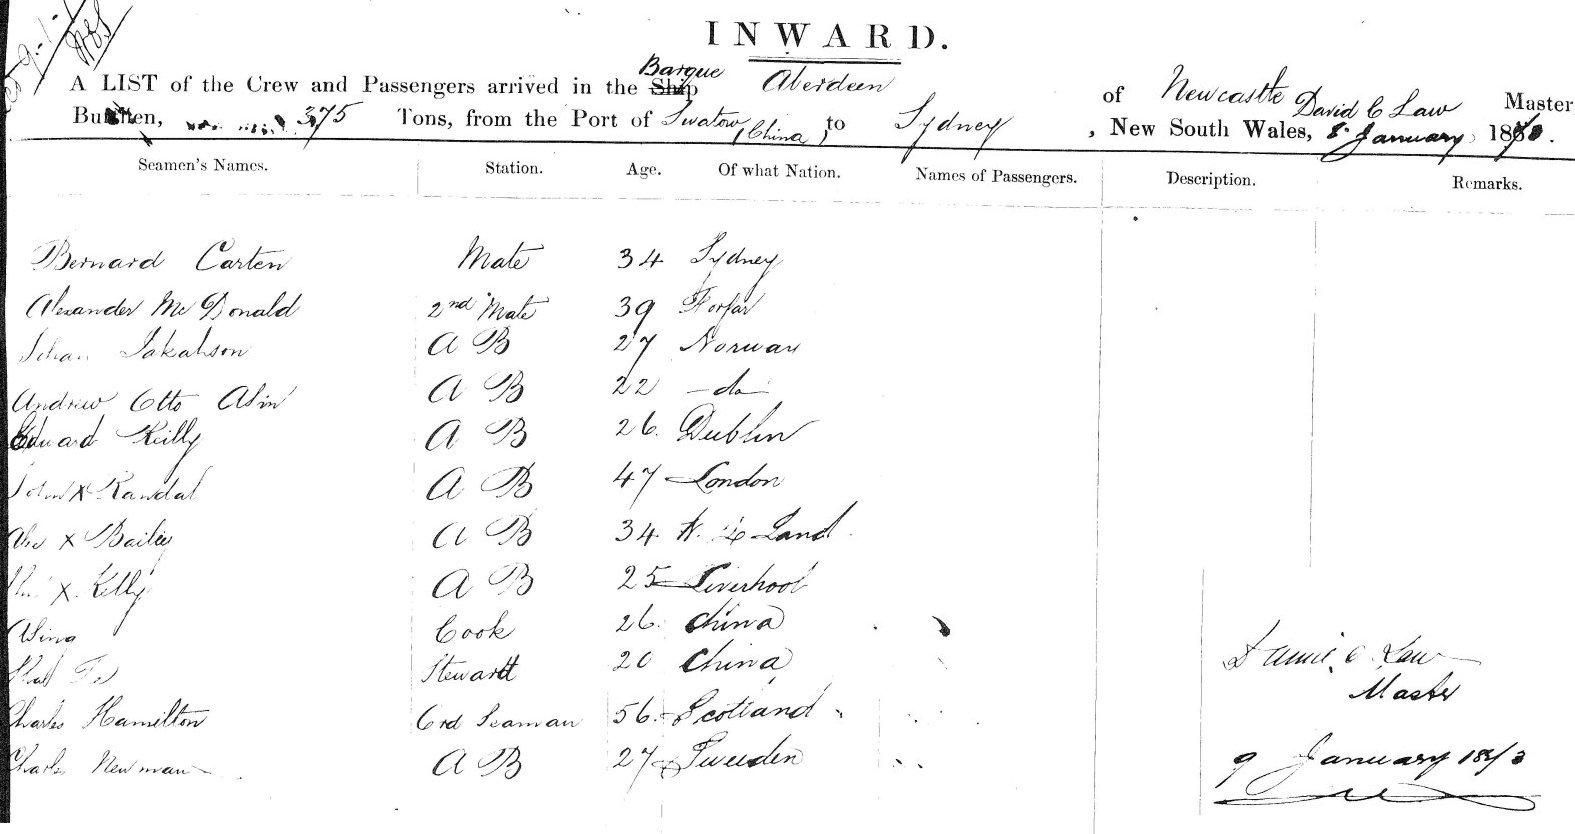 INWARD.
A LIST of the Crew and Passengers arrived in the Ship Barque Aberdeen of Newcastle David C Law Master
Burthen, 375 Tons, from the Port of Swatow, China, to Sydney, New South Wales, 8 January 18
Seamen's Names. Station. Age. Of what Nation. Names of Passengers. Description. Remarks.
Bernard Carten Mate 34 Sydney
Alexander McDonald 2nd Mate 39 Forfar
Johan Jakahson A B 27 Norway
Andrew Otto A B 22 - do -
Edward Reilly A B 26. Dublin
John X Randal A B 47 London
X Bailey A B 34 Land
X Kelly A B 25 Liverpool
Asing Cook 26. China
Stewardt 20 China
Charles Hamilton Ord Seaman 56. Scotland
Charles Newman A B 27 Sweden
C. Law
Master
9 January 18